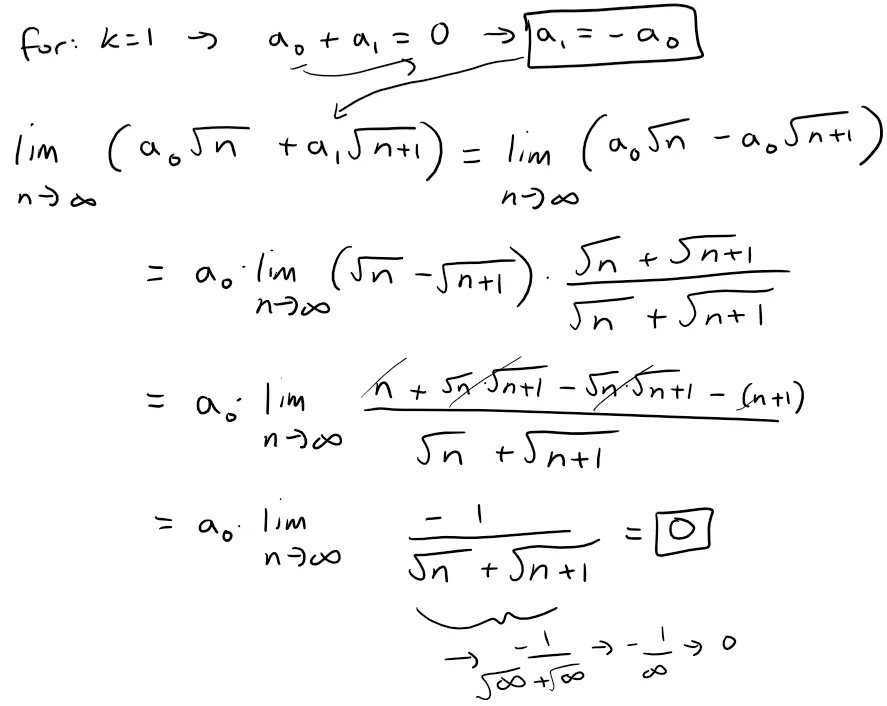 for: k=1 → a₀ + a₁ = 0 → a₁ = - a₀
lim n→∞ (a₀√n + a₁√(n+1)) = lim n→∞ (a₀√n - a₀√(n+1))
= a₀· lim n→∞ (√n - √(n+1)) · (√n + √(n+1))/(√n + √(n+1))
= a₀· lim n→∞ (n + √n·√(n+1) - √n·√(n+1) - (n+1))/(√n + √(n+1))
= a₀· lim n→∞ -1/(√n + √(n+1)) = 0
→ -1/(√∞ + √∞) → -1/∞ → 0